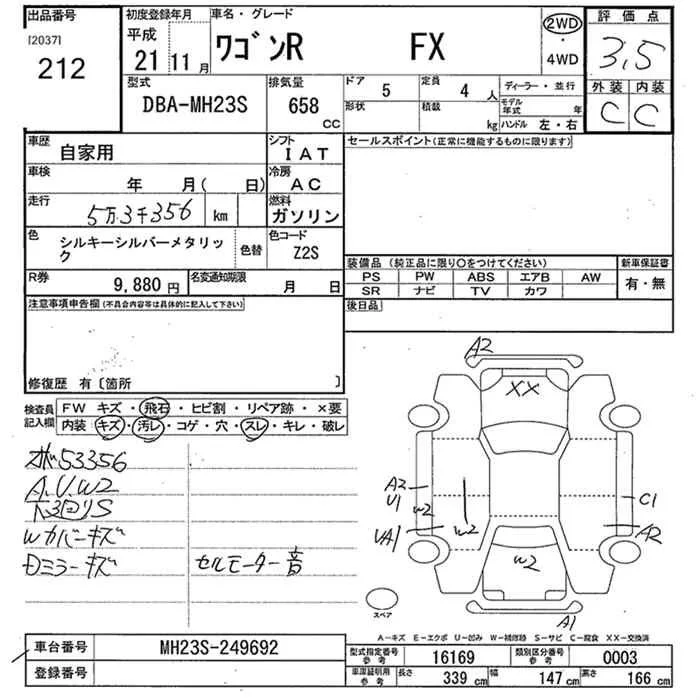 出品番号
[2037]
212
初度登録年月
平成
21 11 月
車名・グレード
ワゴンR FX
2WD
・
4WD
評価点
3,5
外装 内装
C C
型式
DBA-MH23S
排気量
658
CC
ドア
5
定員
4 人
形状
積載
kg
ディーラー・並行
モデル年式 年
ハンドル 左・右
車歴
自家用
シフト
IAT
車検
年 月( 日)
冷房
AC
走行
5万3千356 km
燃料
ガソリン
色
シルキーシルバーメタリック
色替
色コード
Z2S
R券
9,880 円
名変通知期限
月 日
セールスポイント(正常に機能するものに限ります)
装備品(純正品に限り○をつけてください)
PS PW ABS エアB AW
SR ナビ TV カワ
新車保証書
有・無
後日品
注意事項申告欄(不具合内容等は具体的に記入して下さい)
修復歴 有〔箇所 〕
検査員記入欄
FW キズ・飛石・ヒビ割・リペア跡・×要
内装・キズ・汚レ・コゲ・穴・スレ・キレ・破レ
53356
A.U.W2
下回りS
Wカバーキズ
Dミラーキズ
セルモーター音
A2
XX
A2
U1
W2
UA1
W2
C1
A2
W2
A1
スペア
A-キズ E-エクボ U-凹み W-補修跡 S-サビ C-腐食 XX-交換済
車台番号
MH23S-249692
登録番号
型式指定番号
参考
16169
類別区分番号
参考
0003
車庫証明用
参考
長さ
339 cm
幅
147 cm
高さ
166 cm